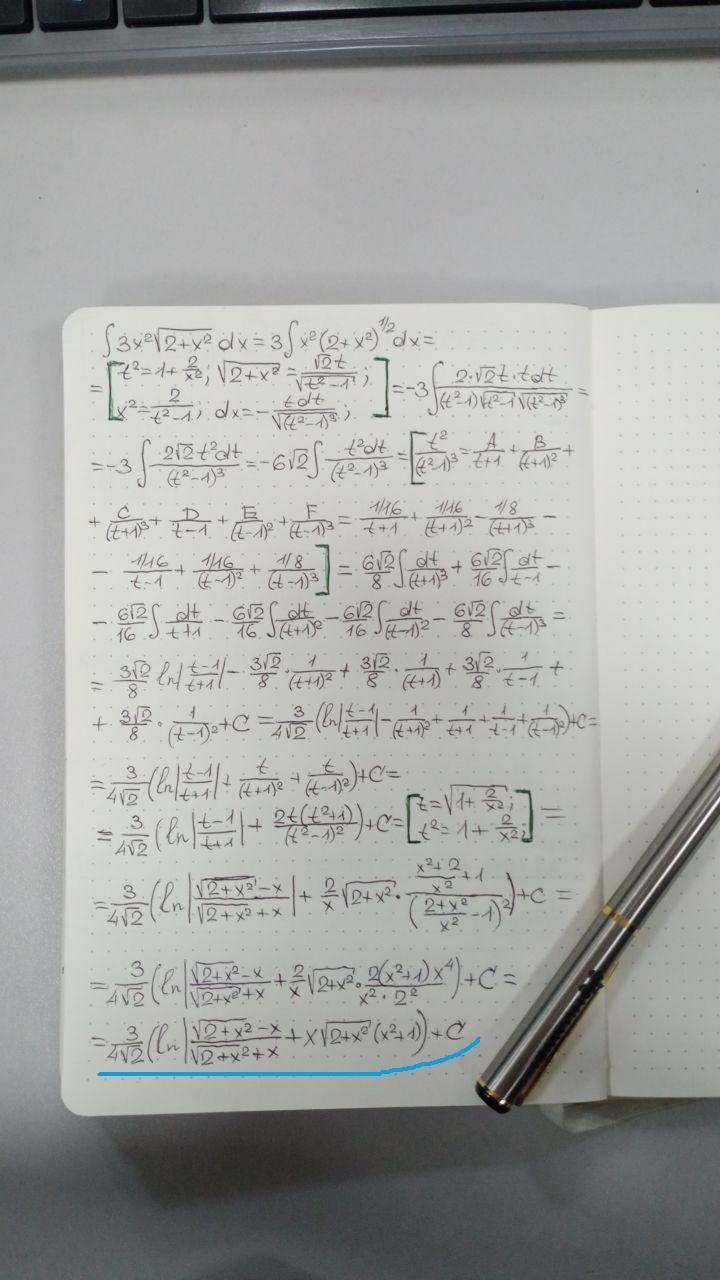 ∫3x²√(2+x²) dx = 3∫x²(2+x²)^(1/2) dx =
= [t² = 1 + 2/x²; √(2+x²) = √2t/√(t²-1);
x² = 2/(t²-1); dx = -tdt/√(t²-1)³;] = -3∫2·√2t·tdt/((t²-1)√(t²-1)√(t²-1)³) =
= -3∫2√2t²dt/(t²-1)³ = -6√2∫t²dt/(t²-1)³ = [t²/(t²-1)³ = A/(t+1) + B/(t+1)² +
+ C/(t+1)³ + D/(t-1) + E/(t-1)² + F/(t-1)³ = (1/16)/(t+1) + (1/16)/(t+1)² - (1/8)/(t+1)³ -
- (1/16)/(t-1) + (1/16)/(t-1)² + (1/8)/(t-1)³] = 6√2/8 ∫dt/(t+1)³ + 6√2/16 ∫dt/(t-1) -
- 6√2/16 ∫dt/(t+1) - 6√2/16 ∫dt/(t+1)² - 6√2/16 ∫dt/(t-1)² - 6√2/8 ∫dt/(t-1)³ =
= 3√2/8 ln|(t-1)/(t+1)| - 3√2/8 · 1/(t+1)² + 3√2/8 · 1/(t+1) + 3√2/8 · 1/(t-1) +
+ 3√2/8 · 1/(t-1)² + C = 3/(4√2) (ln|(t-1)/(t+1)| - 1/(t+1)² + 1/(t+1) + 1/(t-1) + 1/(t-1)²) + C =
= 3/(4√2) (ln|(t-1)/(t+1)| + t/(t+1)² + t/(t-1)²) + C =
= 3/(4√2) (ln|(t-1)/(t+1)| + 2t(t²+1)/(t²-1)²) + C = [t = √(1 + 2/x²); t² = 1 + 2/x²;] =
= 3/(4√2) (ln|(√(2+x²)-x)/(√(2+x²)+x)| + 2/x √(2+x²) · ((x²+2)/x² + 1)/((2+x²)/x² - 1)²) + C =
= 3/(4√2) (ln|(√(2+x²)-x)/(√(2+x²)+x) + 2/x √(2+x²) · 2(x²+1)x⁴/(x²·2²)) + C =
= 3/(4√2) (ln|(√(2+x²)-x)/(√(2+x²)+x) + x√(2+x²)(x²+1)) + C